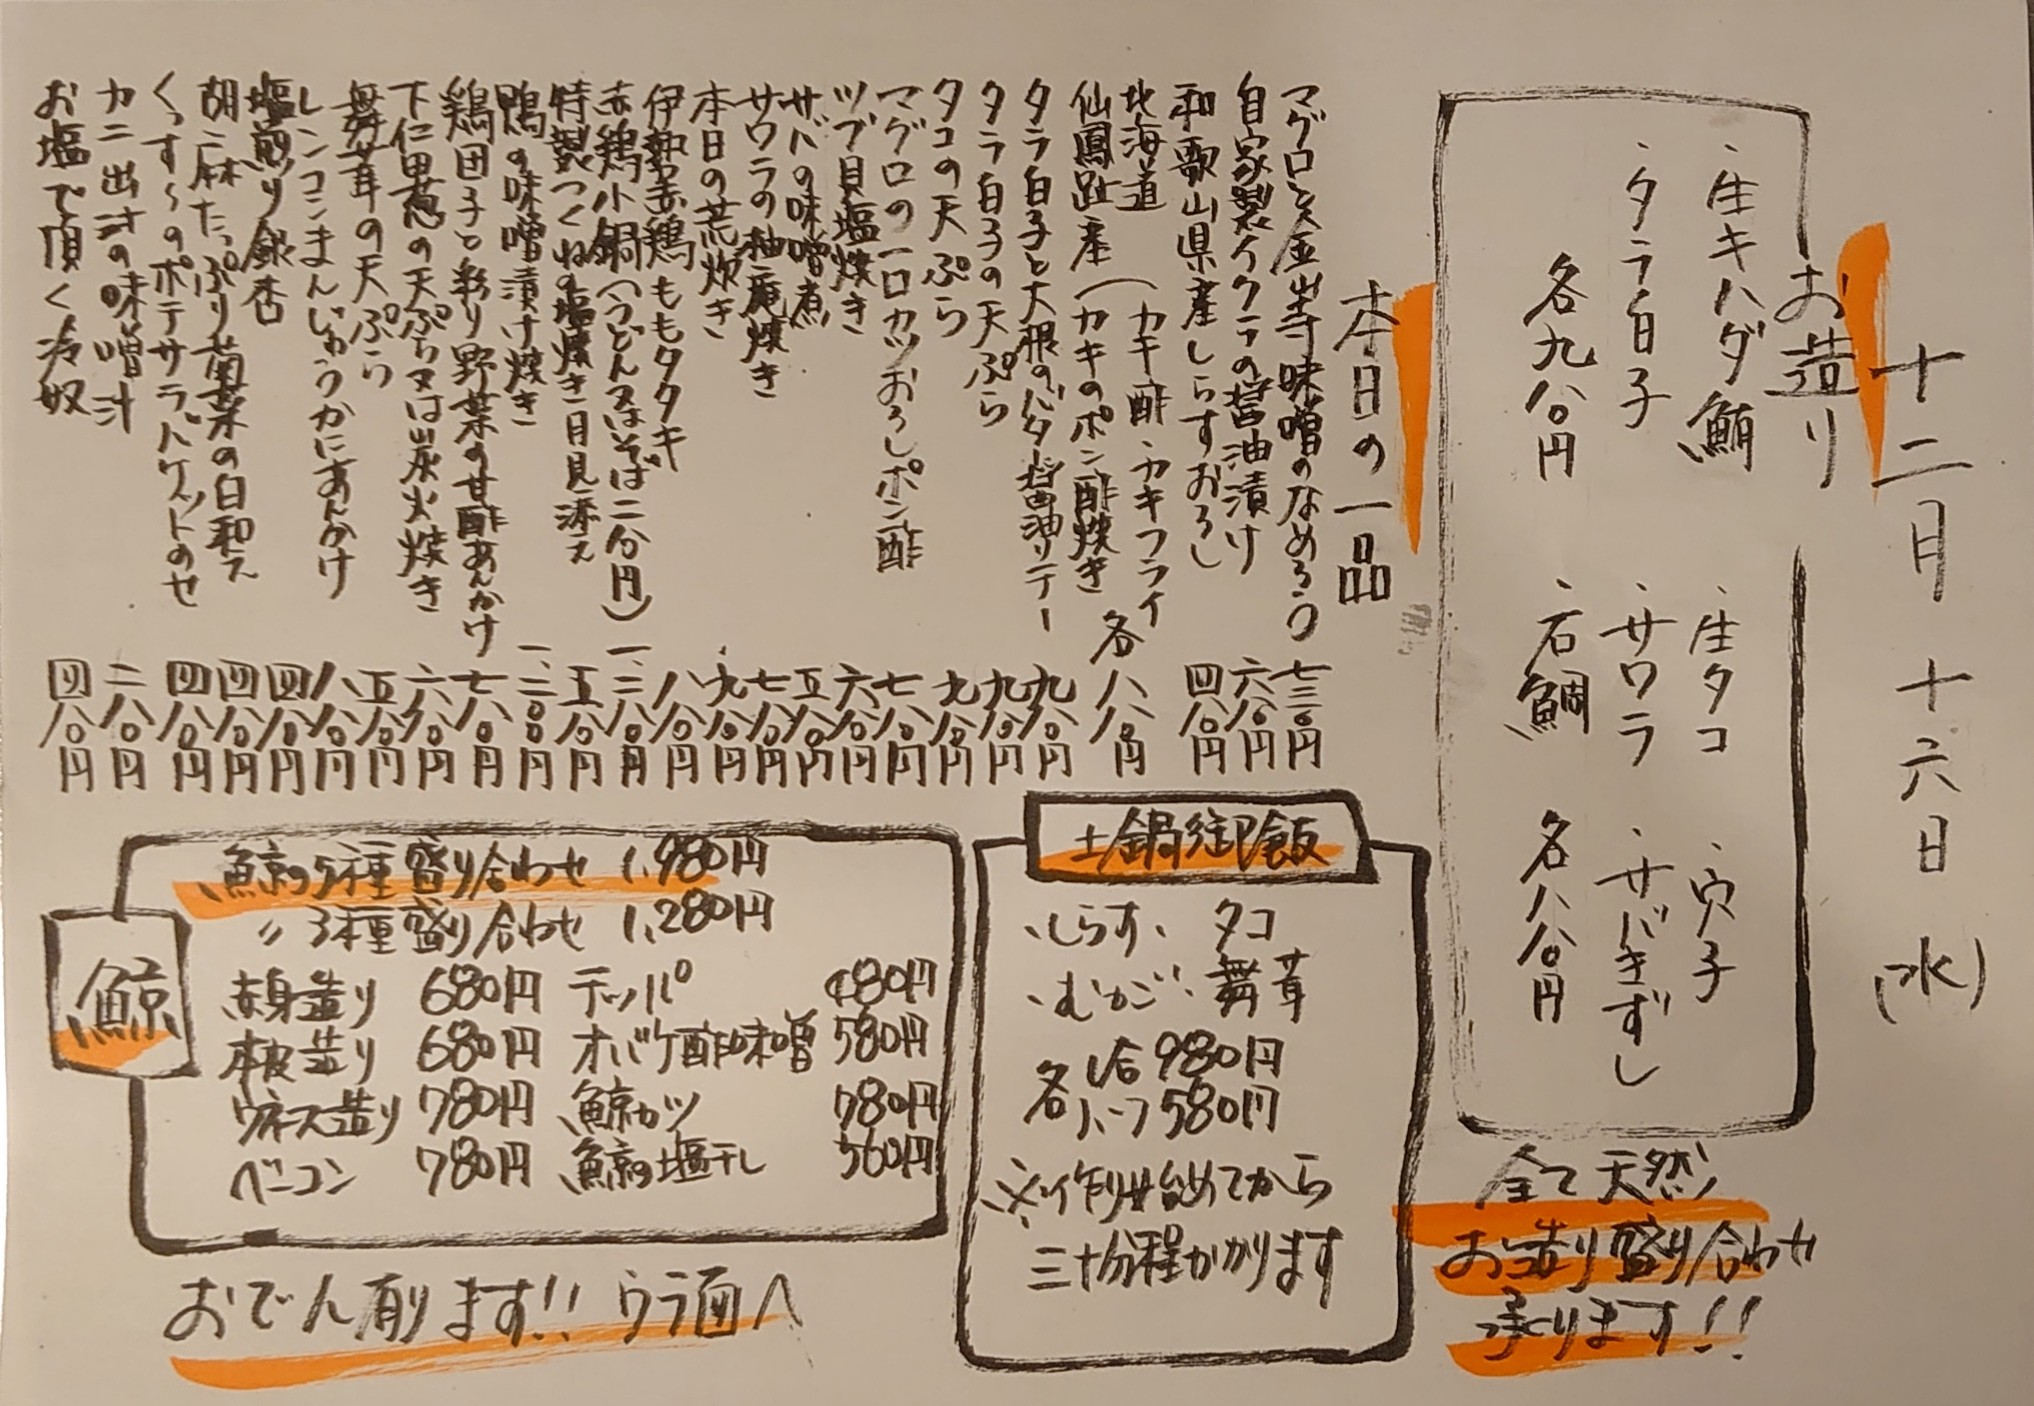 十二月十六日(水)
お造り
・生キハダ鮪
・タラ白子
各九八〇円
・生タコ
・サワラ
・石鯛
・穴子
・サバきずし
各八八〇円
全て天然
お造り盛り合わせ
承ります!!
本日の一品
マグロと金山寺味噌のなめろう 七三〇円
自家製イクラの醤油漬け 六八〇円
和歌山県産しらすおろし 四八〇円
北海道
仙鳳趾産(カキ酢・カキフライ
カキのポン酢焼き 各八八〇円
タラ白子と大根のバター醤油ソテー 九八〇円
タラ白子の天ぷら 九八〇円
タコの天ぷら 九八〇円
マグロの一口カツおろしポン酢 七八〇円
ツブ貝塩焼き 六八〇円
サバの味噌煮 五八〇円
サワラの柚庵焼き 七八〇円
本日の荒炊き 九八〇円
伊勢赤鶏ももタタキ 八八〇円
赤鶏小鍋(うどん又はそば二分円) 一、二八〇円
特製つくねの塩焼き月見添え 五八〇円
鴨の味噌漬け焼き 一、二〇〇円
鶏団子と彩り野菜の甘酢あんかけ 七八〇円
下仁田葱の天ぷら又は炭火焼き 六八〇円
舞茸の天ぷら 五八〇円
レンコンまんじゅうかにあんかけ 八八〇円
塩煎り銀杏 四八〇円
胡麻たっぷり菊菜の白和え 四八〇円
くっす〜のポテサラバケットのせ 四八〇円
カニ出汁の味噌汁 二八〇円
お塩で頂く冷奴 四八〇円
土鍋御飯
・しらす・タコ
・むかご・舞茸
各1合980円
各ハーフ580円
※作り始めてから
三十分程かかります
鯨
鯨の5種盛り合わせ 1,980円
〃3種盛り合わせ 1,280円
赤身造り 680円 テッパ 480円
本皮造り 680円 オバケ酢味噌 580円
ウネス造り 780円 鯨カツ 780円
ベーコン 780円 鯨の塩干し 560円
おでん有ります!! ウラ面へ